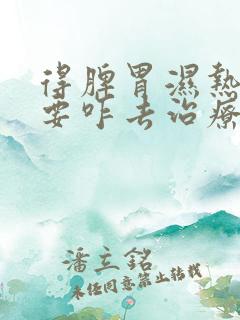 得脾胃濕熱
要咋去治療
潘立銘
未經同意禁止轉載